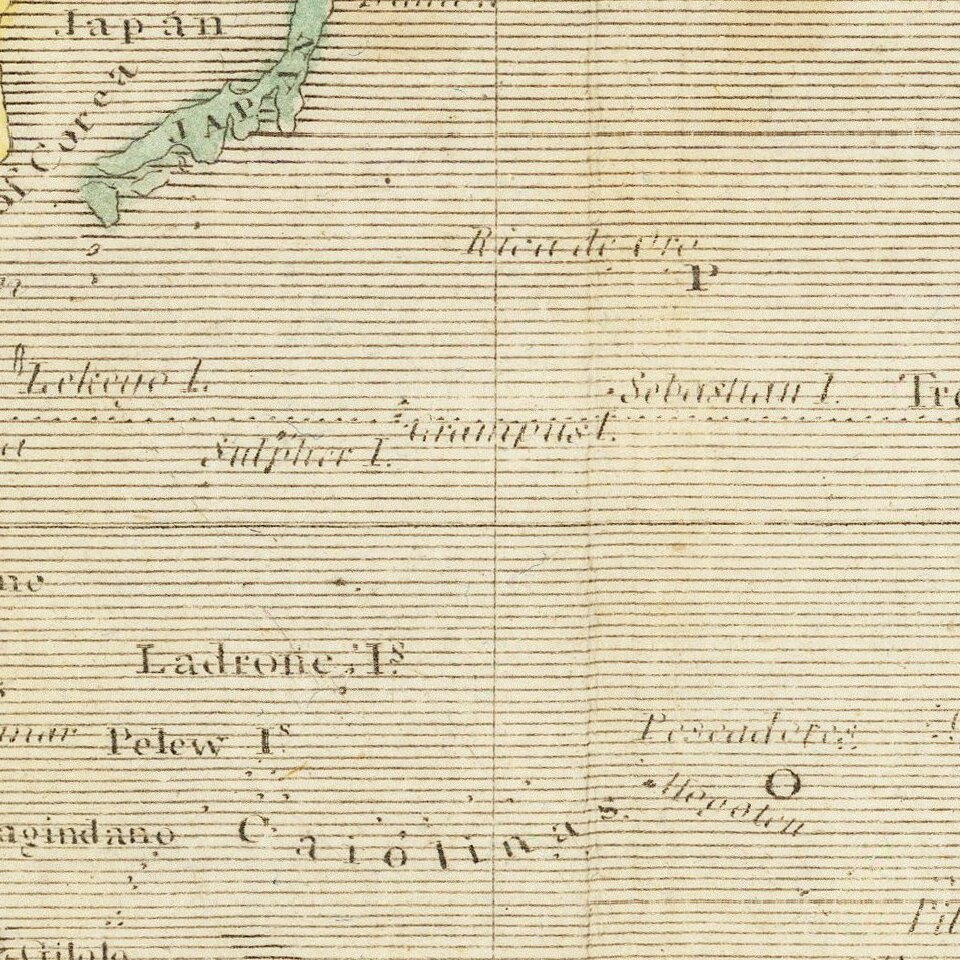 Japan
of Corea
JAPAN
Rica de Oro
P
Lekeyo I.
Sebastian I.
Grampus I.
Sulpher I.
Ladrone Is.
Pelew Is
Pescadores
O
Hogolen
Carolinas.